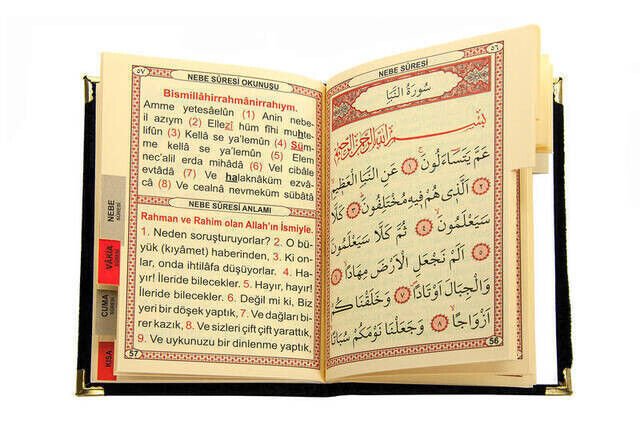 ٥٧
NEBE SÛRESİ OKUNUŞU
Bismillâhirrahmânirrahıym.
Amme yetesâelûn (1) Anin nebe-
il azıym (2) Ellezî hüm fîhi muhte-
lifûn (3) Kellâ se ya'lemûn (4) Süm-
me kellâ se ya'lemûn (5) Elem
nec'alil erda mihâdâ (6) Vel cibâle
evtâdâ (7) Ve halaknâküm ezvâ-
câ (8) Ve cealnâ nevmeküm sübâtâ
NEBE SÛRESİ ANLAMI
Rahman ve Rahim olan Allah'ın İsmiyle.
1. Neden soruşturuyorlar? 2. O bü-
yük (kıyâmet) haberinden, 3. Ki on-
lar, onda ihtilâfa düşüyorlar. 4. Ha-
yır! İleride bilecekler. 5. Hayır, hayır!
İleride bilecekler. 6. Değil mi ki, Biz
yeri bir döşek yaptık, 7. Ve dağları bi-
rer kazık, 8. Ve sizleri çift çift yarattık,
9. Ve uykunuzu bir dinlenme yaptık,
57
NEBE
SÛRESİ
VÂKIA
SÛRESİ
CUMA
SÛRESİ
KISA
٥٦
NEBE SÛRESİ
سُورَةُ النَّبَإِ
بِسْمِ اللّٰهِ الرَّحْمٰنِ الرَّحِيمِ
عَمَّ يَتَسَاءَلُونَ ﴿١﴾ عَنِ النَّبَاِ الْعَظِيمِ
﴿٢﴾ اَلَّذِى هُمْ فِيهِ مُخْتَلِفُونَ ﴿٣﴾ كَلَّا
سَيَعْلَمُونَ ﴿٤﴾ ثُمَّ كَلَّا سَيَعْلَمُونَ
﴿٥﴾ اَلَمْ نَجْعَلِ الْاَرْضَ مِهَادًا ﴿٦﴾
وَالْجِبَالَ اَوْتَادًا ﴿٧﴾ وَخَلَقْنَاكُمْ
اَزْوَاجًا ﴿٨﴾ وَجَعَلْنَا نَوْمَكُمْ سُبَاتًا
56